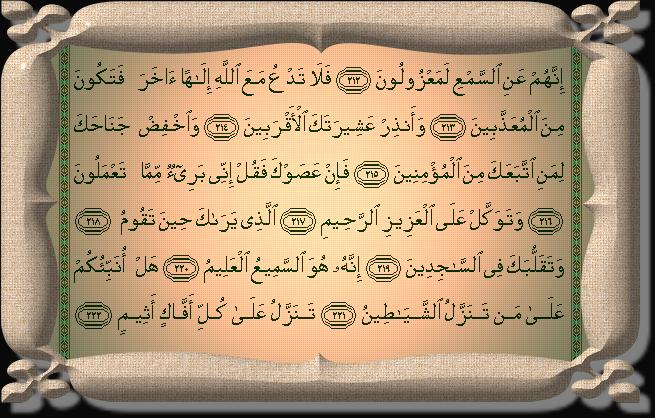 إِنَّهُمْ عَنِ ٱلسَّمْعِ لَمَعْزُولُونَ ٢١٢ فَلَا تَدْعُ مَعَ ٱللَّهِ إِلَـٰهًا ءَاخَرَ فَتَكُونَ
مِنَ ٱلْمُعَذَّبِينَ ٢١٣ وَأَنذِرْ عَشِيرَتَكَ ٱلْأَقْرَبِينَ ٢١٤ وَٱخْفِضْ جَنَاحَكَ
لِمَنِ ٱتَّبَعَكَ مِنَ ٱلْمُؤْمِنِينَ ٢١٥ فَإِنْ عَصَوْكَ فَقُلْ إِنِّى بَرِىٓءٌ مِّمَّا تَعْمَلُونَ
٢١٦ وَتَوَكَّلْ عَلَى ٱلْعَزِيزِ ٱلرَّحِيمِ ٢١٧ ٱلَّذِى يَرَىٰكَ حِينَ تَقُومُ ٢١٨
وَتَقَلُّبَكَ فِى ٱلسَّـٰجِدِينَ ٢١٩ إِنَّهُۥ هُوَ ٱلسَّمِيعُ ٱلْعَلِيمُ ٢٢٠ هَلْ أُنَبِّئُكُمْ
عَلَىٰ مَن تَنَزَّلُ ٱلشَّيَـٰطِينُ ٢٢١ تَنَزَّلُ عَلَىٰ كُلِّ أَفَّاكٍ أَثِيمٍ ٢٢٢